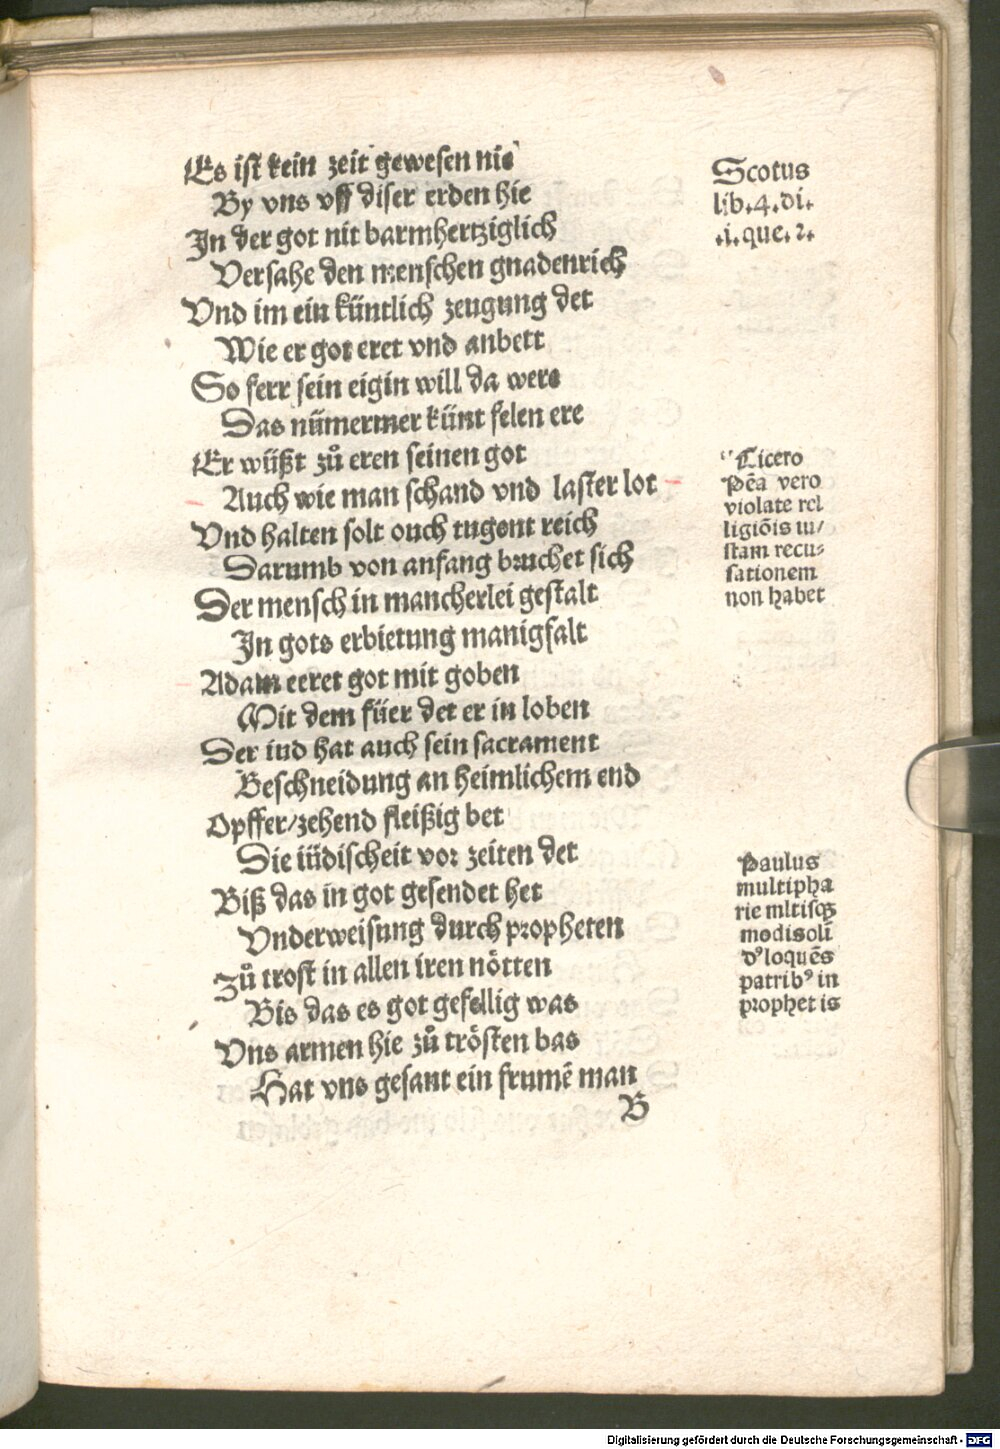 Es ist kein zeit gewesen nie
By vns vff diser erden hie
In der got nit barmhertziglich
Versahe den menschen gnadenrich
Vnd im ein küntlich zeugung det
Wie er got eret vnd anbett
So ferr sein eigin will da were
Das nümermer künt felen ere
Er wüßt zů eren seinen got
Auch wie man schand vnd laster lot
Vnd halten solt ouch tugent reich
Darumb von anfang bruchet sich
Der mensch in mancherlei gestalt
In gots erbietung manigfalt
Adam eeret got mit goben
Mit dem füer det er in loben
Der iud hat auch sein sacrament
Beschneidung an heimlichem end
Opffer/zehend fleißig bet
Die iüdischeit vor zeiten det
Biß das in got gesendet het
Vnderweisung durch propheten
Zů trost in allen iren nötten
Bis das es got gefellig was
Vns armen hie zů trösten bas
Hat vns gesant ein frumē man
B
Scotus
lib.4.di.
.i.que.2.
Cicero
Pēa vero
violate rel
ligiōis iu/
stam recu-
sationem
non habet
Paulus
multipha
rie mltisqꝫ
modis olī
dꝰ loquēs
patribꝰ in
prophetis
Digitalisierung gefördert durch die Deutsche Forschungsgemeinschaft - DFG